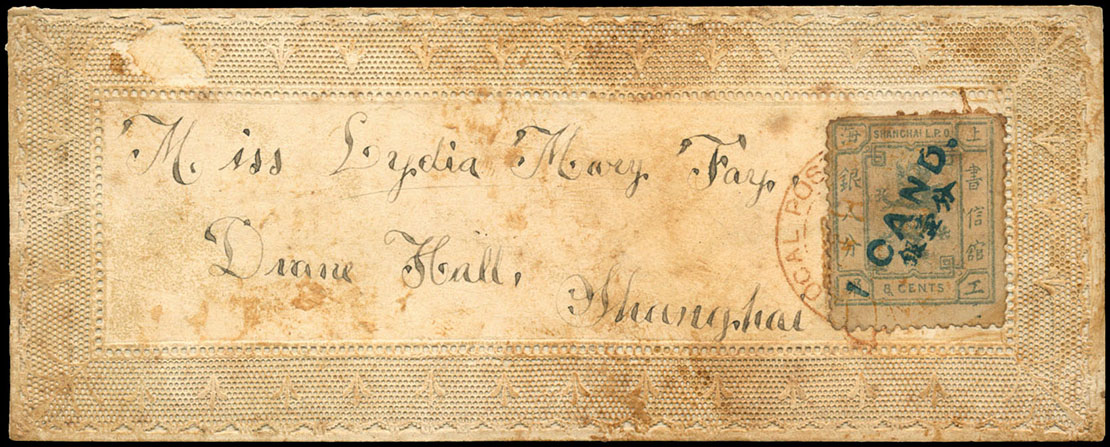 Miss Lydia Mary Fay,
Duane Hall,
Shanghai
LOCAL POS
SHANGHAI L.P.O.
上海
書信館
工部
銀八分
8 CENTS
1 CAND.